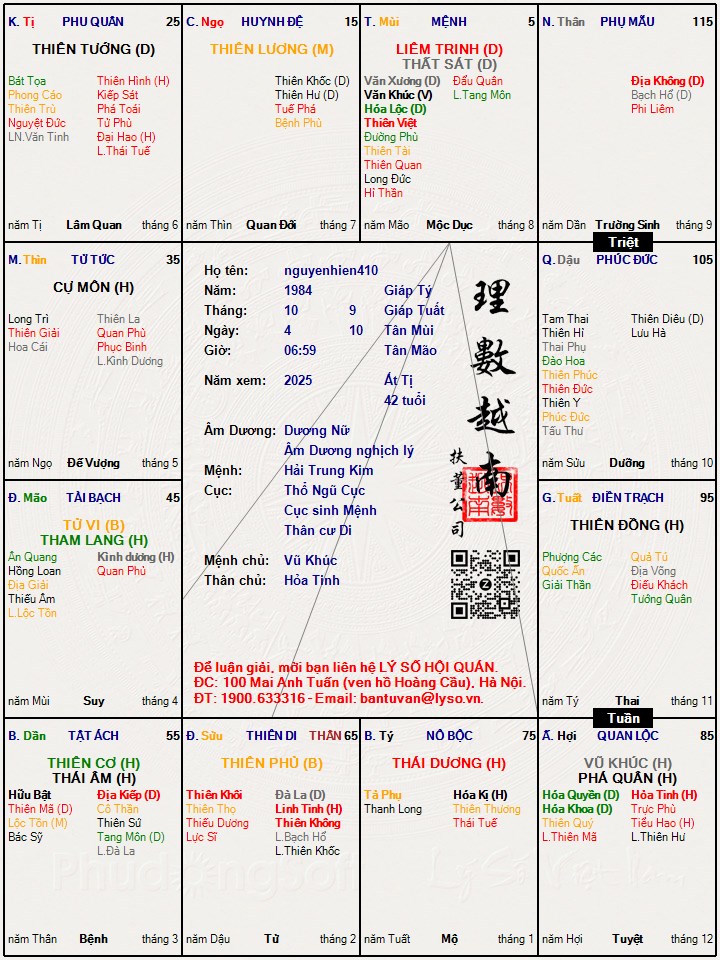 K. Tị PHU QUÂN 25
THIÊN TƯỚNG (D)
Bát Tọa Thiên Hình (H)
Phong Cáo Kiếp Sát
Thiên Trù Phá Toái
Nguyệt Đức Tử Phù
LN.Văn Tinh Đại Hao (H)
L.Thái Tuế
năm Tị Lâm Quan tháng 6
C. Ngọ HUYNH ĐỆ 15
THIÊN LƯƠNG (M)
Thiên Khốc (D)
Thiên Hư (D)
Tuế Phá
Bệnh Phù
năm Thìn Quan Đới tháng 7
T. Mùi MỆNH 5
LIÊM TRINH (D)
THẤT SÁT (D)
Văn Xương (D) Đẩu Quân
Văn Khúc (V) L.Tang Môn
Hóa Lộc (D)
Thiên Việt
Đường Phù
Thiên Tài
Thiên Quan
Long Đức
Hỉ Thần
năm Mão Mộc Dục tháng 8
N. Thân PHỤ MẪU 115
Địa Không (D)
Bạch Hổ (D)
Phi Liêm
năm Dần Trường Sinh tháng 9
Triệt
M. Thìn TỬ TỨC 35
CỰ MÔN (H)
Long Trì Thiên La
Thiên Giải Quan Phù
Hoa Cái Phục Binh
L.Kình Dương
năm Ngọ Đế Vượng tháng 5
Họ tên: nguyenhien410
Năm: 1984 Giáp Tý
Tháng: 10 9 Giáp Tuất
Ngày: 4 10 Tân Mùi
Giờ: 06:59 Tân Mão
Năm xem: 2025 Ất Tị
42 tuổi
Âm Dương: Dương Nữ
Âm Dương nghịch lý
Mệnh: Hải Trung Kim
Cục: Thổ Ngũ Cục
Cục sinh Mệnh
Thân cư Di
Mệnh chủ: Vũ Khúc
Thân chủ: Hỏa Tinh
理數越南
扶董公司
Để luận giải, mời bạn liên hệ LÝ SỐ HỘI QUÁN.
ĐC: 100 Mai Anh Tuấn (ven hồ Hoàng Cầu), Hà Nội.
ĐT: 1900.633316 - Email: bantuvan@lyso.vn.
Q. Dậu PHÚC ĐỨC 105
Tam Thai Thiên Diêu (D)
Thiên Hỉ Lưu Hà
Thai Phụ
Đào Hoa
Thiên Phúc
Thiên Đức
Thiên Y
Phúc Đức
Tấu Thư
năm Sửu Dưỡng tháng 10
Đ. Mão TÀI BẠCH 45
TỬ VI (B)
THAM LANG (H)
Ân Quang Kình dương (H)
Hồng Loan Quan Phủ
Địa Giải
Thiếu Âm
L.Lộc Tồn
năm Mùi Suy tháng 4
G. Tuất ĐIỀN TRẠCH 95
THIÊN ĐỒNG (H)
Phượng Các Quả Tú
Quốc Ấn Địa Võng
Giải Thần Điếu Khách
Tướng Quân
năm Tý Thai tháng 11
Tuần
B. Dần TẬT ÁCH 55
THIÊN CƠ (H)
THÁI ÂM (H)
Hữu Bật Địa Kiếp (D)
Thiên Mã (D) Cô Thần
Lộc Tồn (M) Thiên Sứ
Bác Sỹ Tang Môn (D)
L.Đà La
năm Thân Bệnh tháng 3
Đ. Sửu THIÊN DI THÂN 65
THIÊN PHỦ (B)
Thiên Khôi Đà La (D)
Thiên Thọ Linh Tinh (H)
Thiếu Dương Thiên Không
Lực Sĩ L.Bạch Hổ
L.Thiên Khốc
năm Dậu Tử tháng 2
B. Tý NÔ BỘC 75
THÁI DƯƠNG (H)
Tả Phụ Hóa Kị (H)
Thanh Long Thiên Thương
Thái Tuế
năm Tuất Mộ tháng 1
Ấ. Hợi QUAN LỘC 85
VŨ KHÚC (H)
PHÁ QUÂN (H)
Hóa Quyền (D) Hỏa Tinh (H)
Hóa Khoa (D) Trực Phù
Thiên Quý Tiểu Hao (H)
L.Thiên Mã L.Thiên Hư
năm Hợi Tuyệt tháng 12